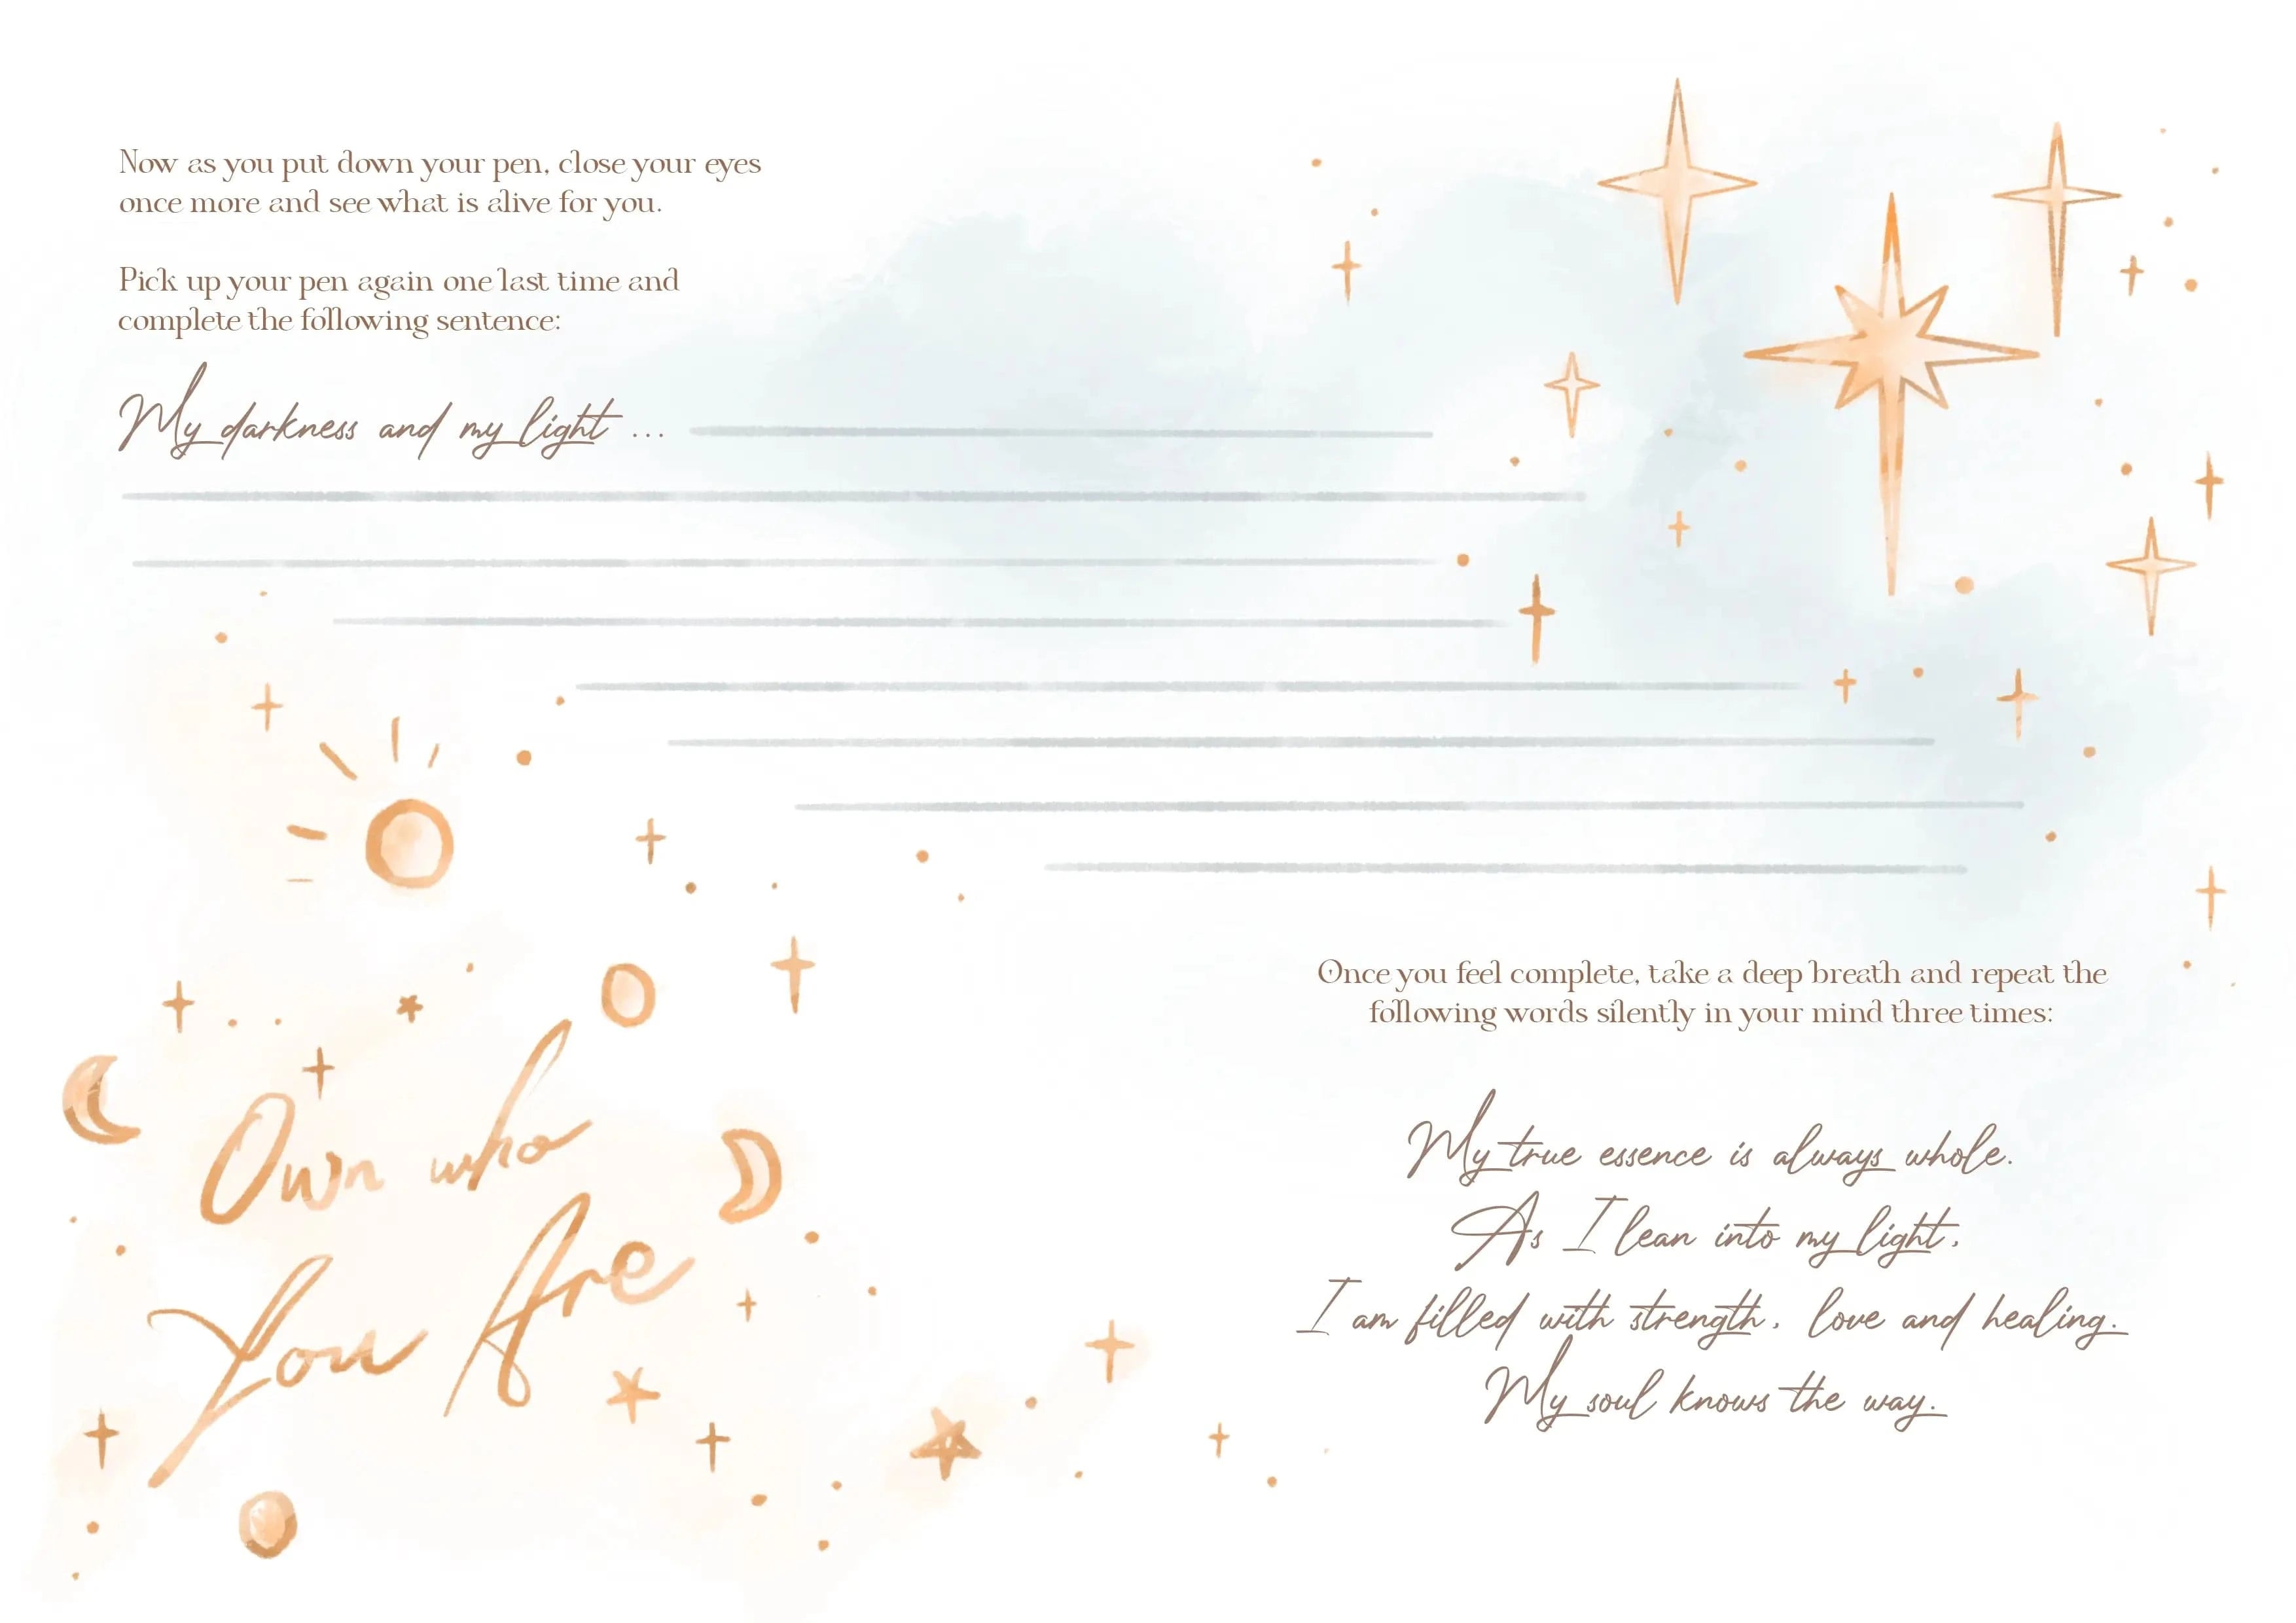 Now as you put down your pen, close your eyes
once more and see what is alive for you.
Pick up your pen again one last time and
complete the following sentence:
My darkness and my light ...
Once you feel complete, take a deep breath and repeat the
following words silently in your mind three times:
Own who
You Are
My true essence is always whole.
As I lean into my light,
I am filled with strength, love and healing.
My soul knows the way.